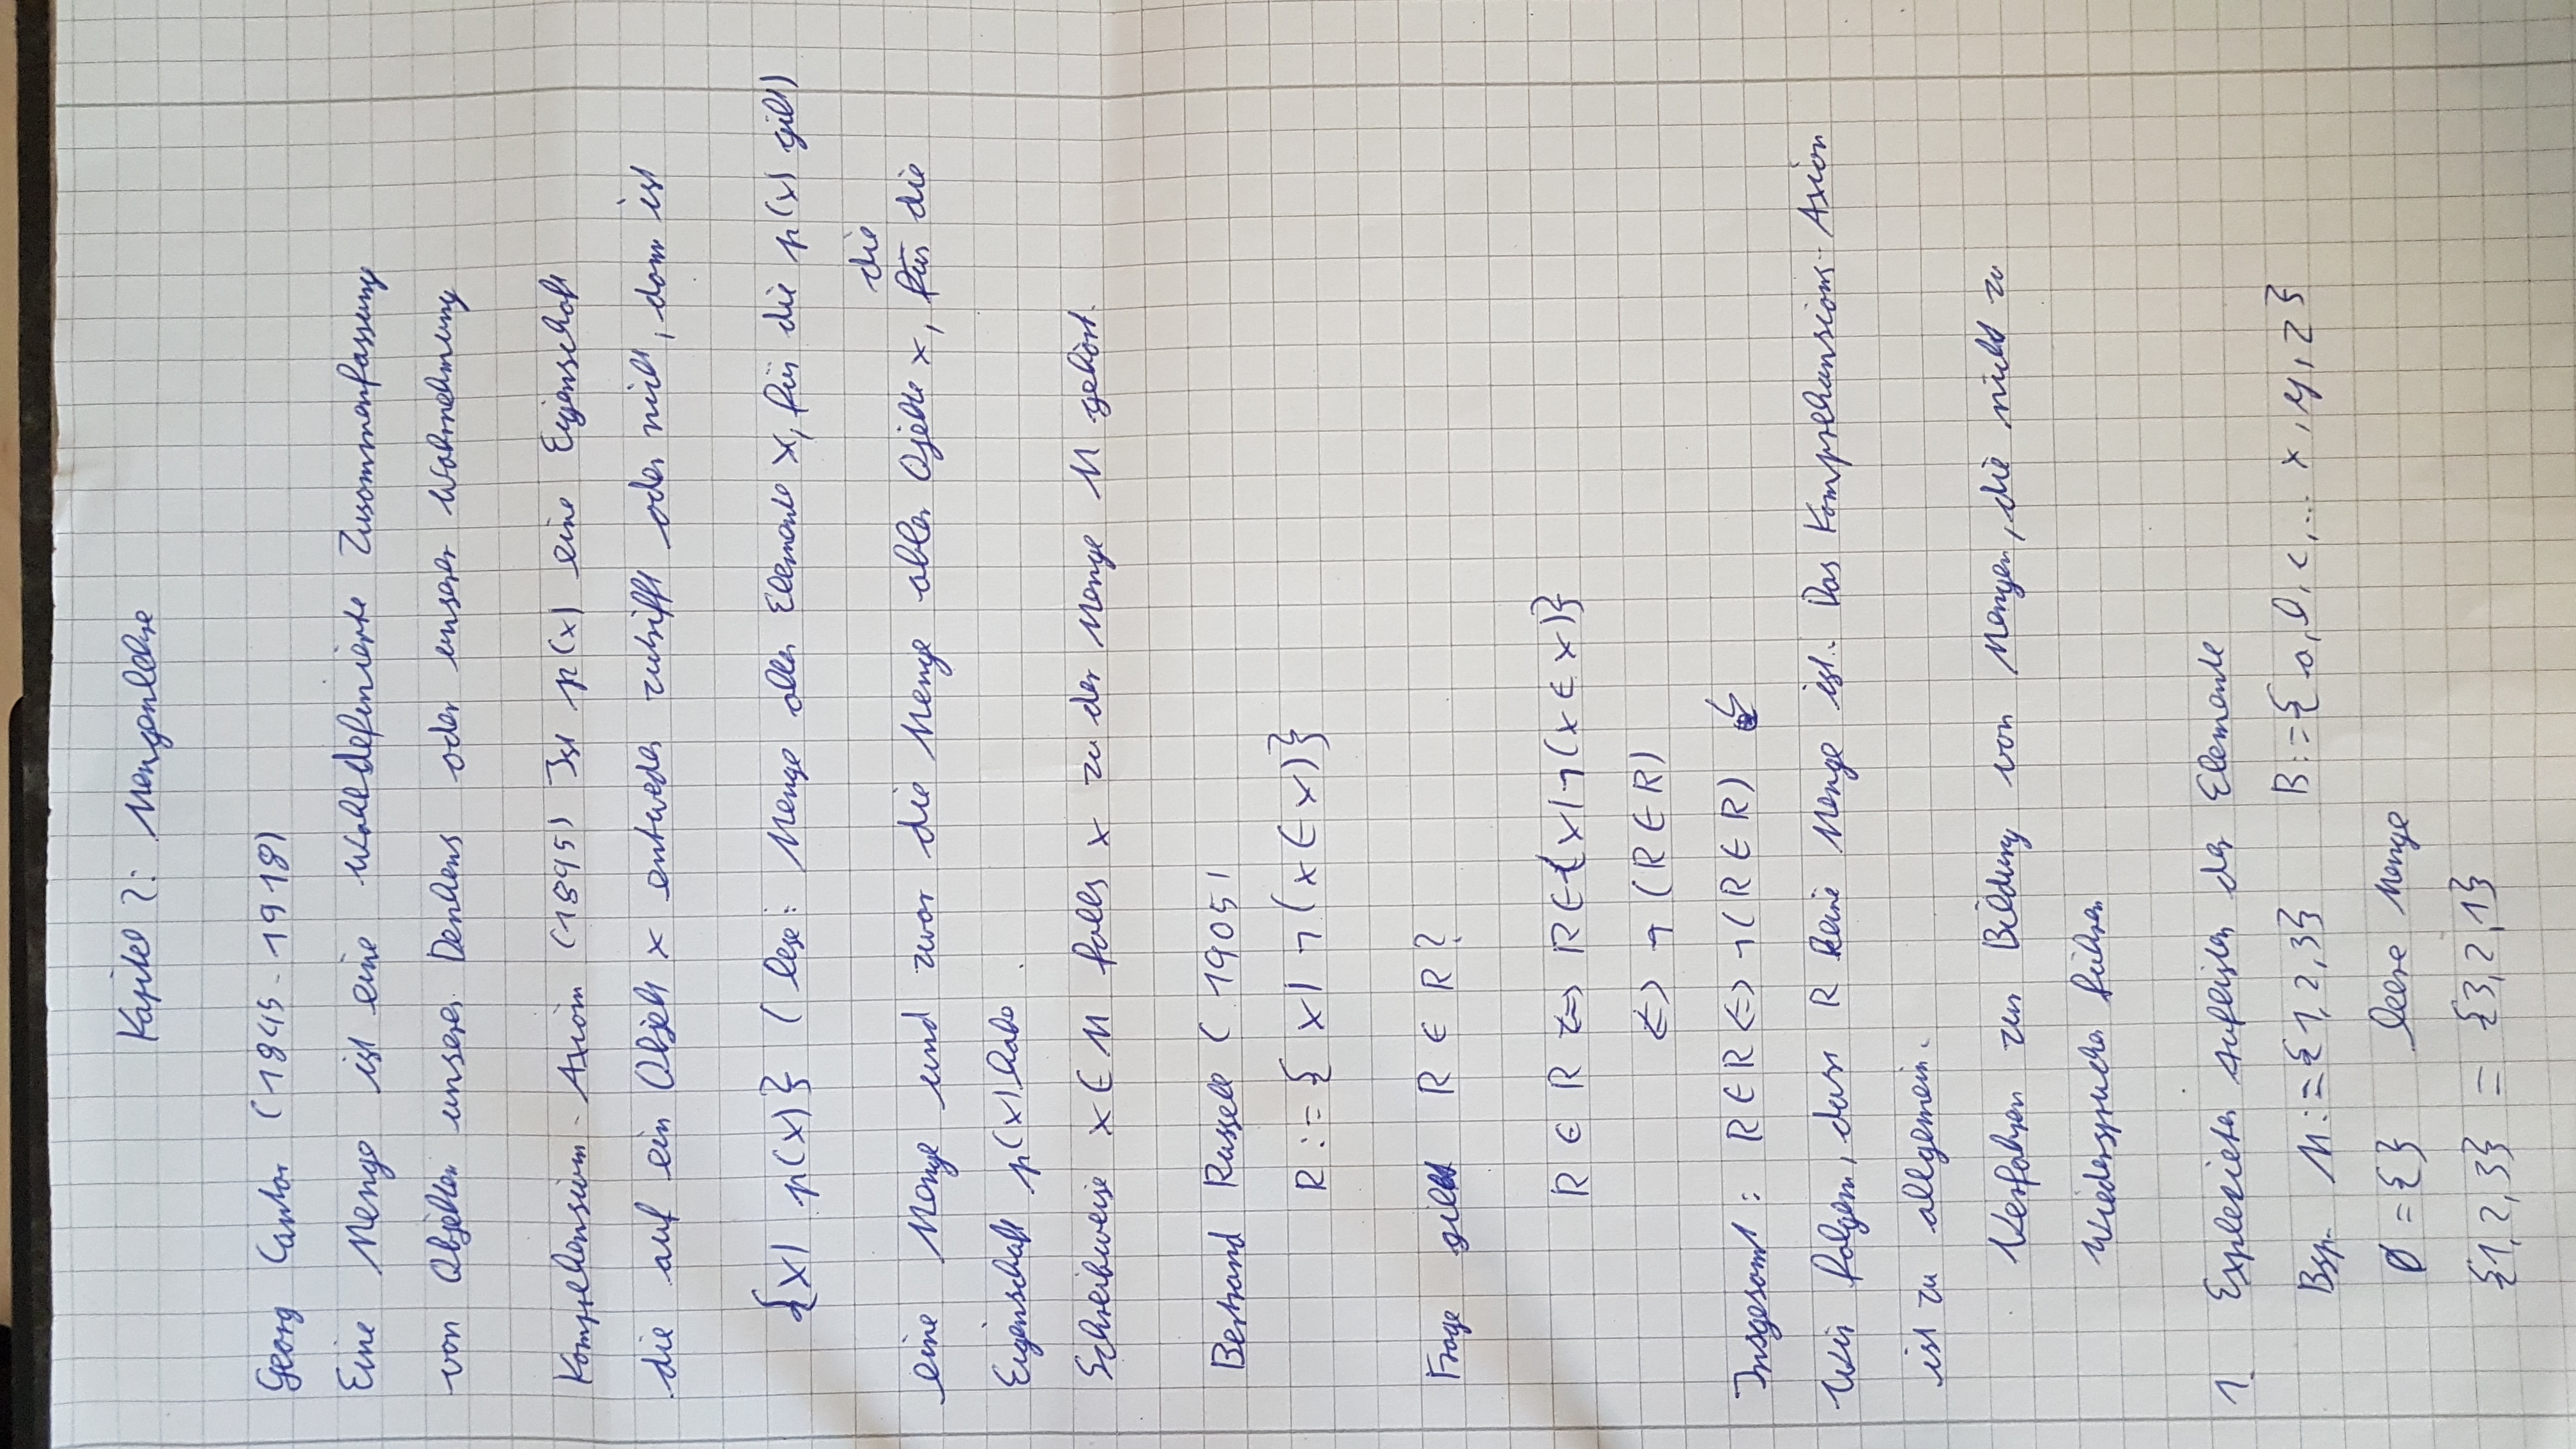 Kapitel 2: Mengenlehre
Georg Cantor (1845 - 1918)
Eine Menge ist eine wohldefinierte Zusammenfassung
von Objekten unseres Denkens oder unserer Wahrnehmung
Komprehension - Axiom (1895) Ist p(x) eine Eigenschaft
die auf ein Objekt x entweder zutrifft oder nicht, dann ist
{x| p(x)} (lese: Menge aller Elemente x, für die p(x) gilt)
die
eine Menge und zwar die Menge aller Ojekte x, für die
Eigenschaft p(x) habe.
Schreibweise x ∈ M falls x zu der Menge M gehört.
Bertrand Russell (1905)
R := { x| ¬(x ∈ x)}
Frage gilt R ∈ R?
R ∈ R <=> R ∈ {x|¬(x ∈ x)}
<=> ¬ (R ∈ R)
Insgesamt: R ∈ R <=> ¬(R ∈ R) ↯
Wir folgern, dass R keine Menge ist. Das Komprehansions-Axion
ist zu allgemein.
Verfahren zur Bildung von Mengen, die nicht zu
Wiederspruche führen
1. Explezieter Auflisten der Elemente
Bsp. M := {1, 2, 3} B := {a, b, c, ... x, y, z}
∅ = {} leere Menge
{1, 2, 3} = {3, 2, 1}